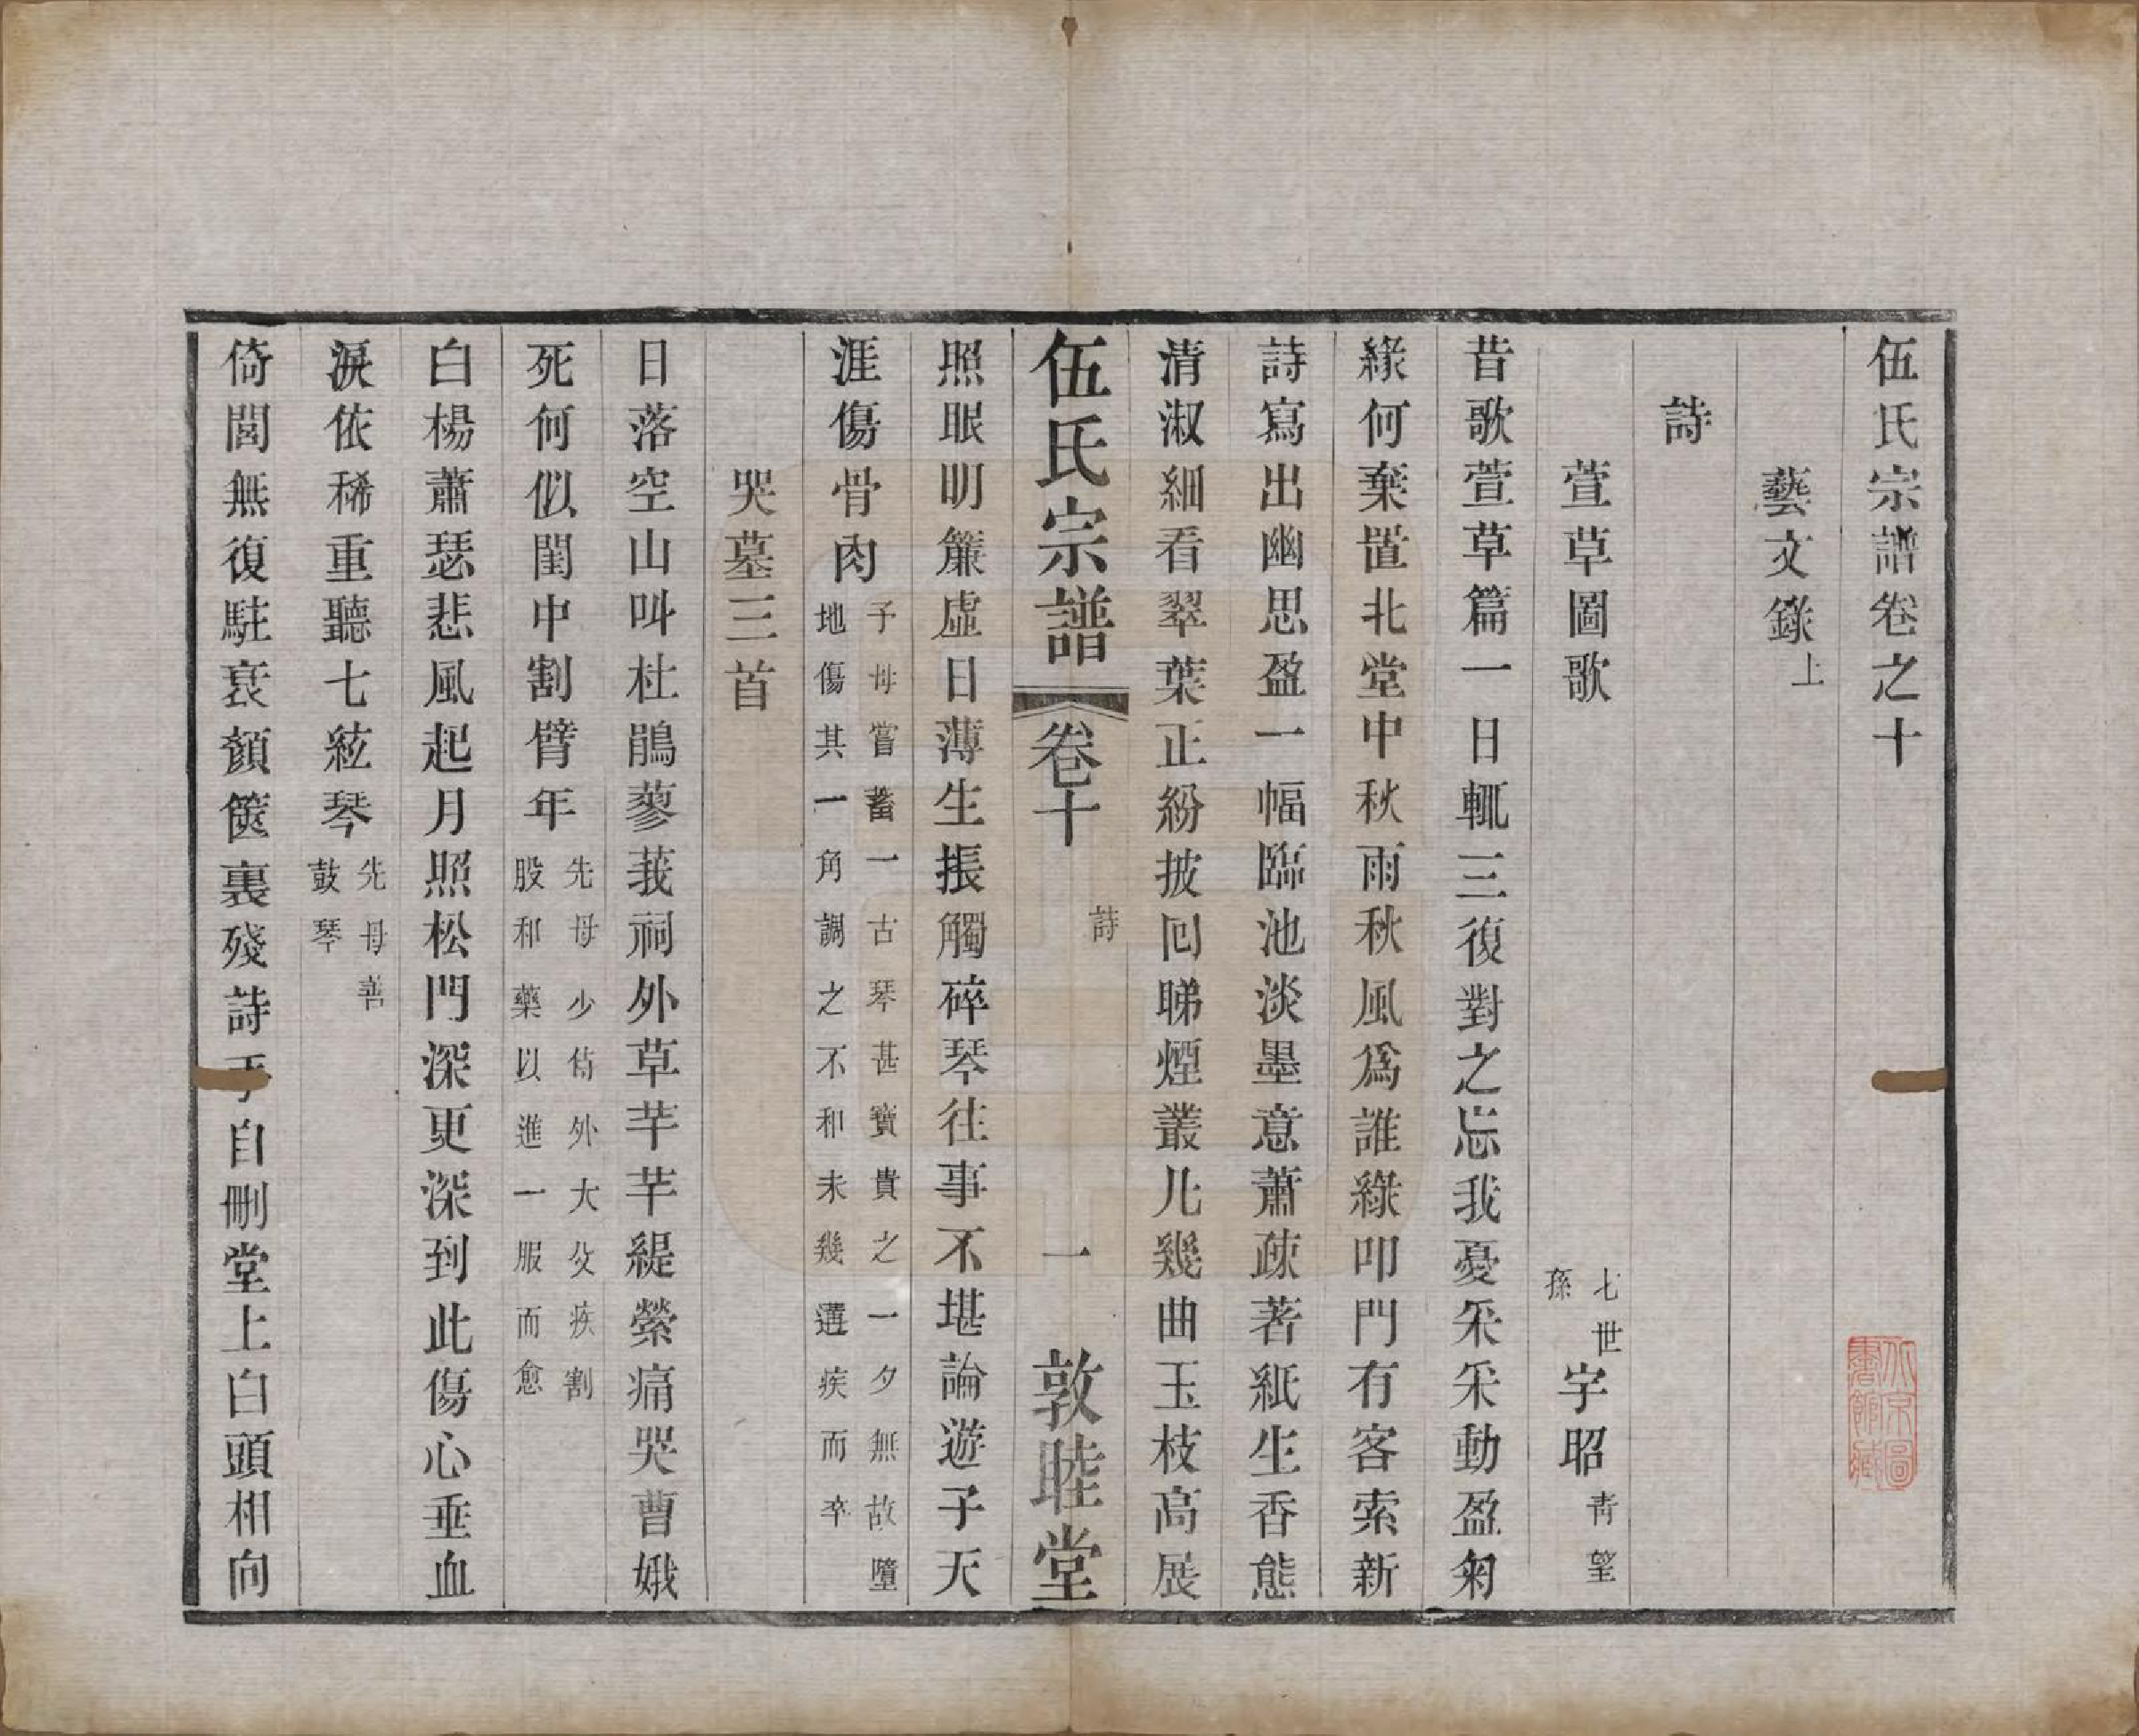 伍氏宗譜卷之十
藝文錄上
詩
萱草圖歌 七世孫 字昭青望
昔歌萱草篇一日輒三復對之忘我憂采采動盈匊
緣何棄置北堂中秋雨秋風爲誰綠叩門有客索新
詩寫出幽思盈一幅臨池淡墨意蕭疎著紙生香態
清淑細看翠葉正紛披回睇煙叢几幾曲玉枝高展
伍氏宗譜 卷十 詩 一 敦睦堂
照眼明簾虛日薄生振觸碎琴往事不堪論遊子天
涯傷骨肉子母嘗蓄一古琴甚寶貴之一夕無故墮地傷其一角調之不和未幾遘疾而卒
哭墓三首
日落空山叫杜鵑蓼莪祠外草芊芊緹縈痛哭曹娥
死何似閨中割臂年先母少侍外大父疾割股和藥以進一服而愈
白楊蕭瑟悲風起月照松門深更深到此傷心垂血
淚依稀重聽七絃琴先母善鼓琴
倚閭無復駐衰顏篋裏殘詩手自刪堂上白頭相向